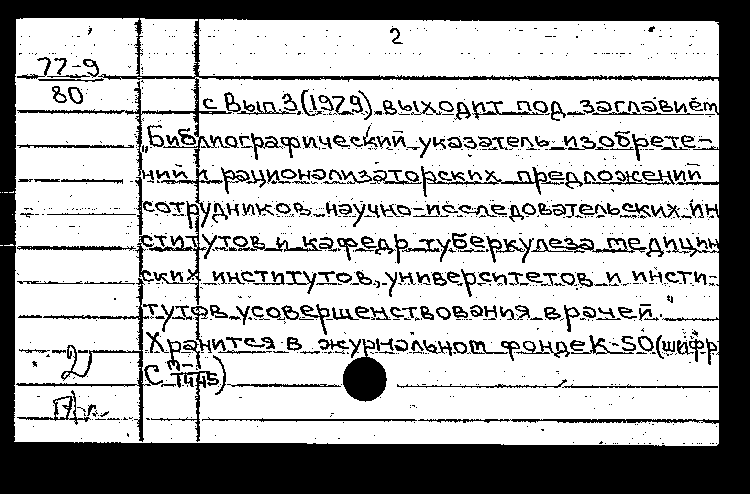 2
77-9
80
с Вып.3(1979) выходит под заглавием
"Библиографический указатель изобрете-
ний и рационализаторских предложений
сотрудников научно-исследовательских ин
ститутов и кафедр туберкулеза медицин
ских институтов, университетов и инсти-
тутов усовершенствования врачей."
Хранится в журнальном фонде К-50(шифр
2
С 1445)